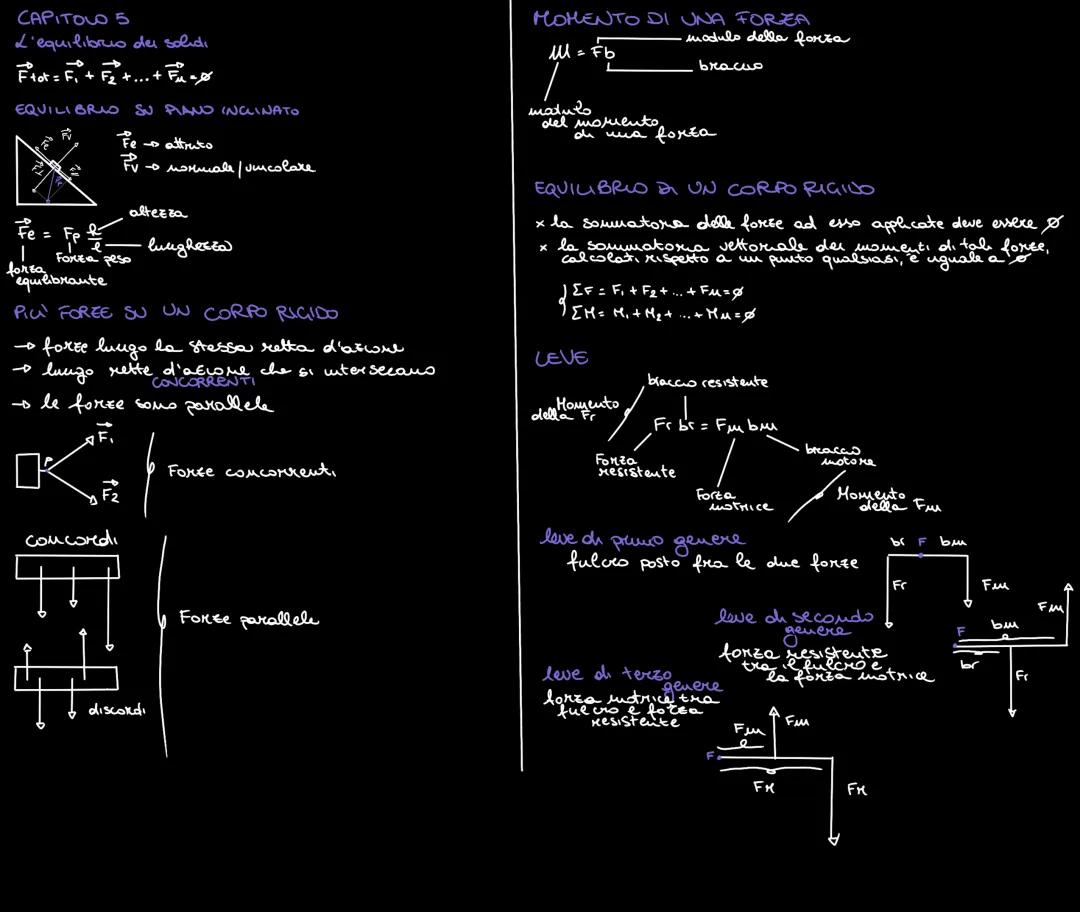 CAPITOLO 5
L'equilibrio dei solidi
Ftot = F1 + F2 + ... + Fn = ø
EQUILIBRIO SU PIANO INCLINATO
Fe → attrito
Fv → normale/vincolare
altezza
Fe = Fp h/l
lunghezza
Forza peso
forza
equilibrante
PIU' FORZE SU UN CORPO RIGIDO
→ forze lungo la stessa retta d'azione
→ lungo rette d'azione che si intersecano
CONCORRENTI
→ le forze sono parallele
F1
P
F2
Forze concorrenti
concordi
Forze parallele
discordi
MOMENTO DI UNA FORZA
modulo della forza
M = Fb
braccio
modulo
del momento
di una forza
EQUILIBRIO DI UN CORPO RIGIDO
× la sommatoria delle forze ad esso applicate deve essere ø
× la sommatoria vettoriale dei momenti di tali forze,
calcolati rispetto a un punto qualsiasi, è uguale a ø
ΣF = F1 + F2 + ... + Fn = ø
ΣM = M1 + M2 + ... + Mn = ø
LEVE
braccio resistente
Momento
della Fr
Fr br = Fm bm
Forza
resistente
braccio
motore
Forza
motrice
Momento
della Fm
leve di primo genere
fulcro posto fra le due forze
br F bm
Fr
Fm
leve di secondo
genere
forza resistente
tra il fulcro e
la forza motrice
Fm
bm
F
br
Fr
leve di terzo
genere
forza motrice tra
fulcro e forza
resistente
Fm
Fm
F
Fr
Fr